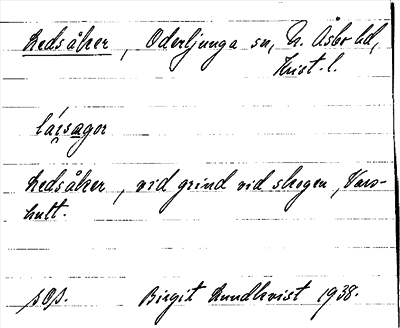 Ledsåker, Oderljunga sn, N. Åsbo hd,
Krist. l.
lásagər
Ledsåker, vid grind vid skogen, Vars-
hult.
sOs. Birgit Lundkvist 1938.